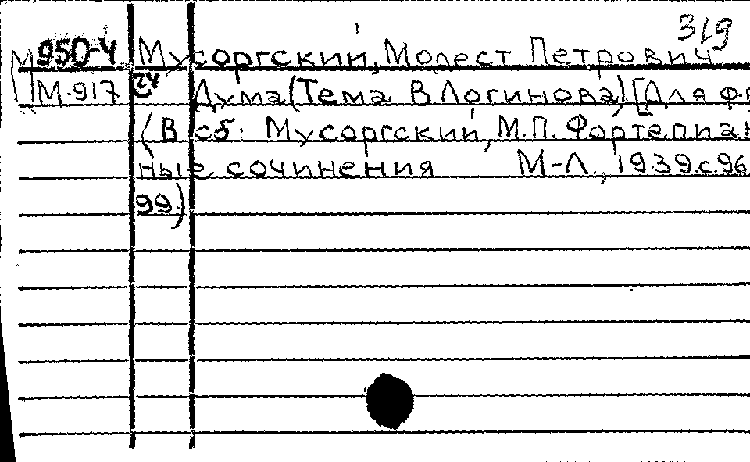 319
М 950-4 Мусоргский, Модест Петрович
М-917 24 Дума (Тема В Логинова) [Для ф-
(В сб: Мусоргский, М.П. Фортепиан
ные сочинения М-Л, 1939.с.96
99)